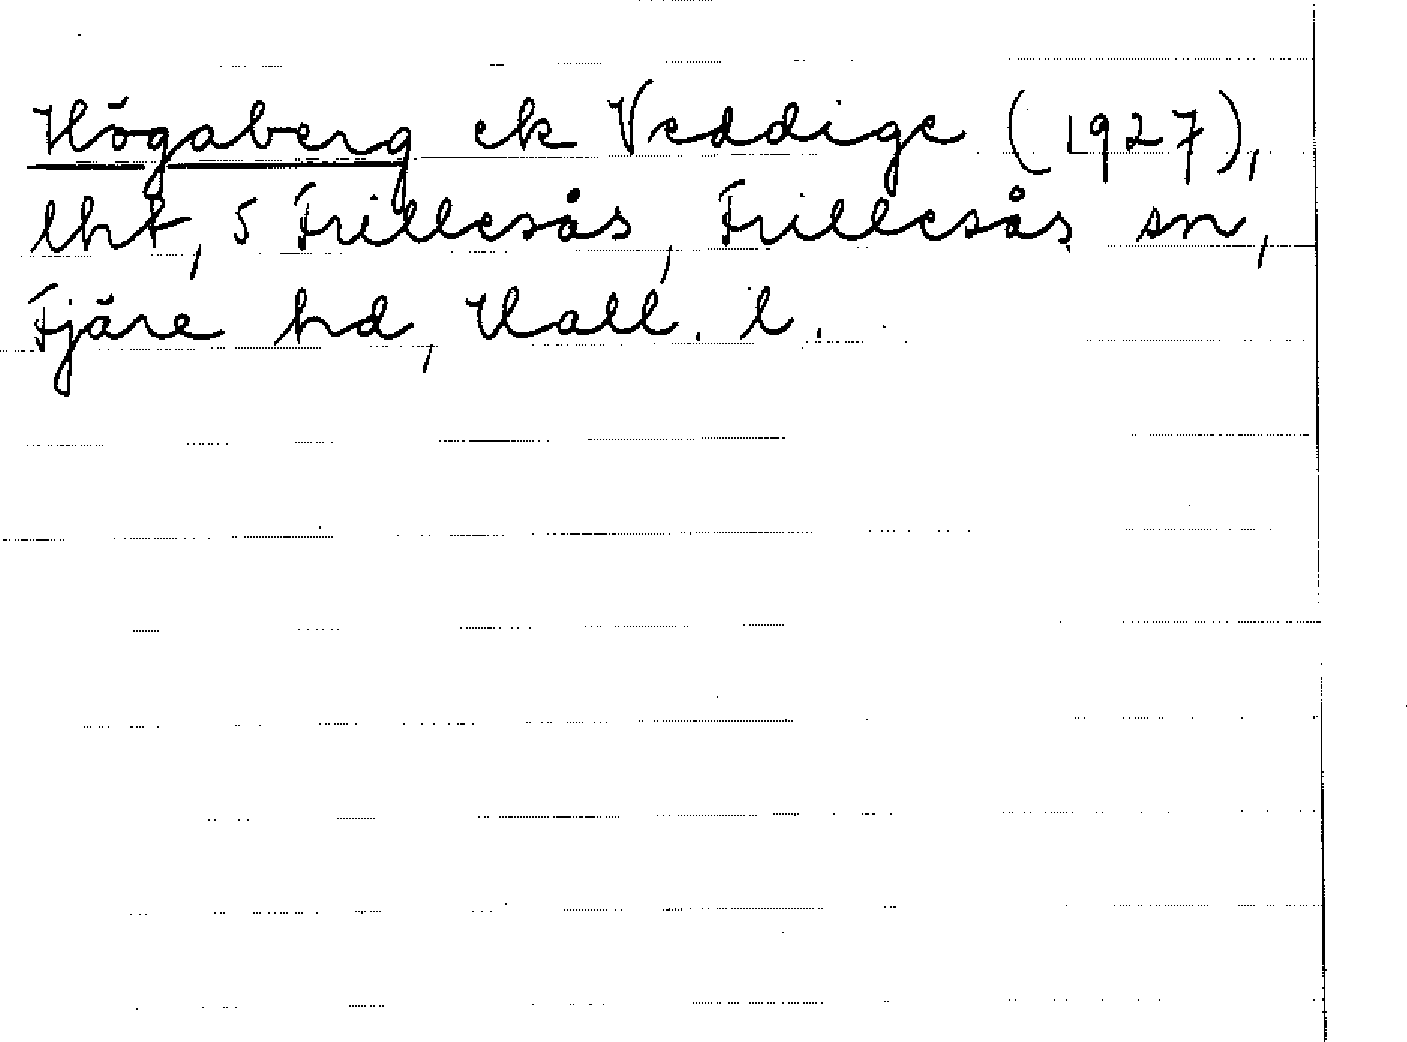 Högaberg ek Veddige (1927),
lht, 5 Frillesås, Frillesås sn,
Fjäre hd, Hall. l.